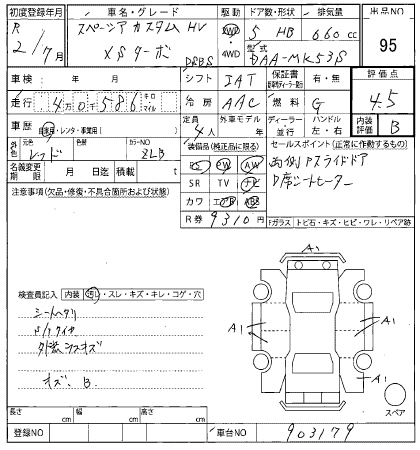 初度登録年月 車名・グレード 駆動 ドア数・形状 排気量 出品NO
R 2/7月 スペーシア カスタム HV XSターボ 2WD 4WD 5 HB 660cc 95
DRBS 型式 DAA-MK53S
車検 年 月 シフト IAT 保証書 有・無 評価点
走行 4万0千586 キロ マイル 冷房 AAC 燃料 G 4.5
車歴 自家用・レンタ・事業用( ) 定員 4人 外車モデル ディーラー 並行 ハンドル 左・右 内装評価 B
外色 元色 レッド 色替 カラーNO ZLB 装備品(純正品に限る) セールスポイント(正常に作動するもの)
名義変更期限 月 日迄 積載 t PS PW AW 両側Pスライドドア
注意事項(欠品・修復・不具合箇所および状態) SR TV ナビ D席シートヒーター
カワ エアB ABS
R券 9310円 Fガラス トビ石・キズ・ヒビ・ワレ・リペア跡
A1
検査員記入 内装 汚レ・スレ・キズ・キレ・コゲ・穴
シートヘタリ
A1 A1
外装 小スオズ
A1
オズ、B
スペア
長さ cm 幅 cm 高さ cm
登録NO 車台NO 903179